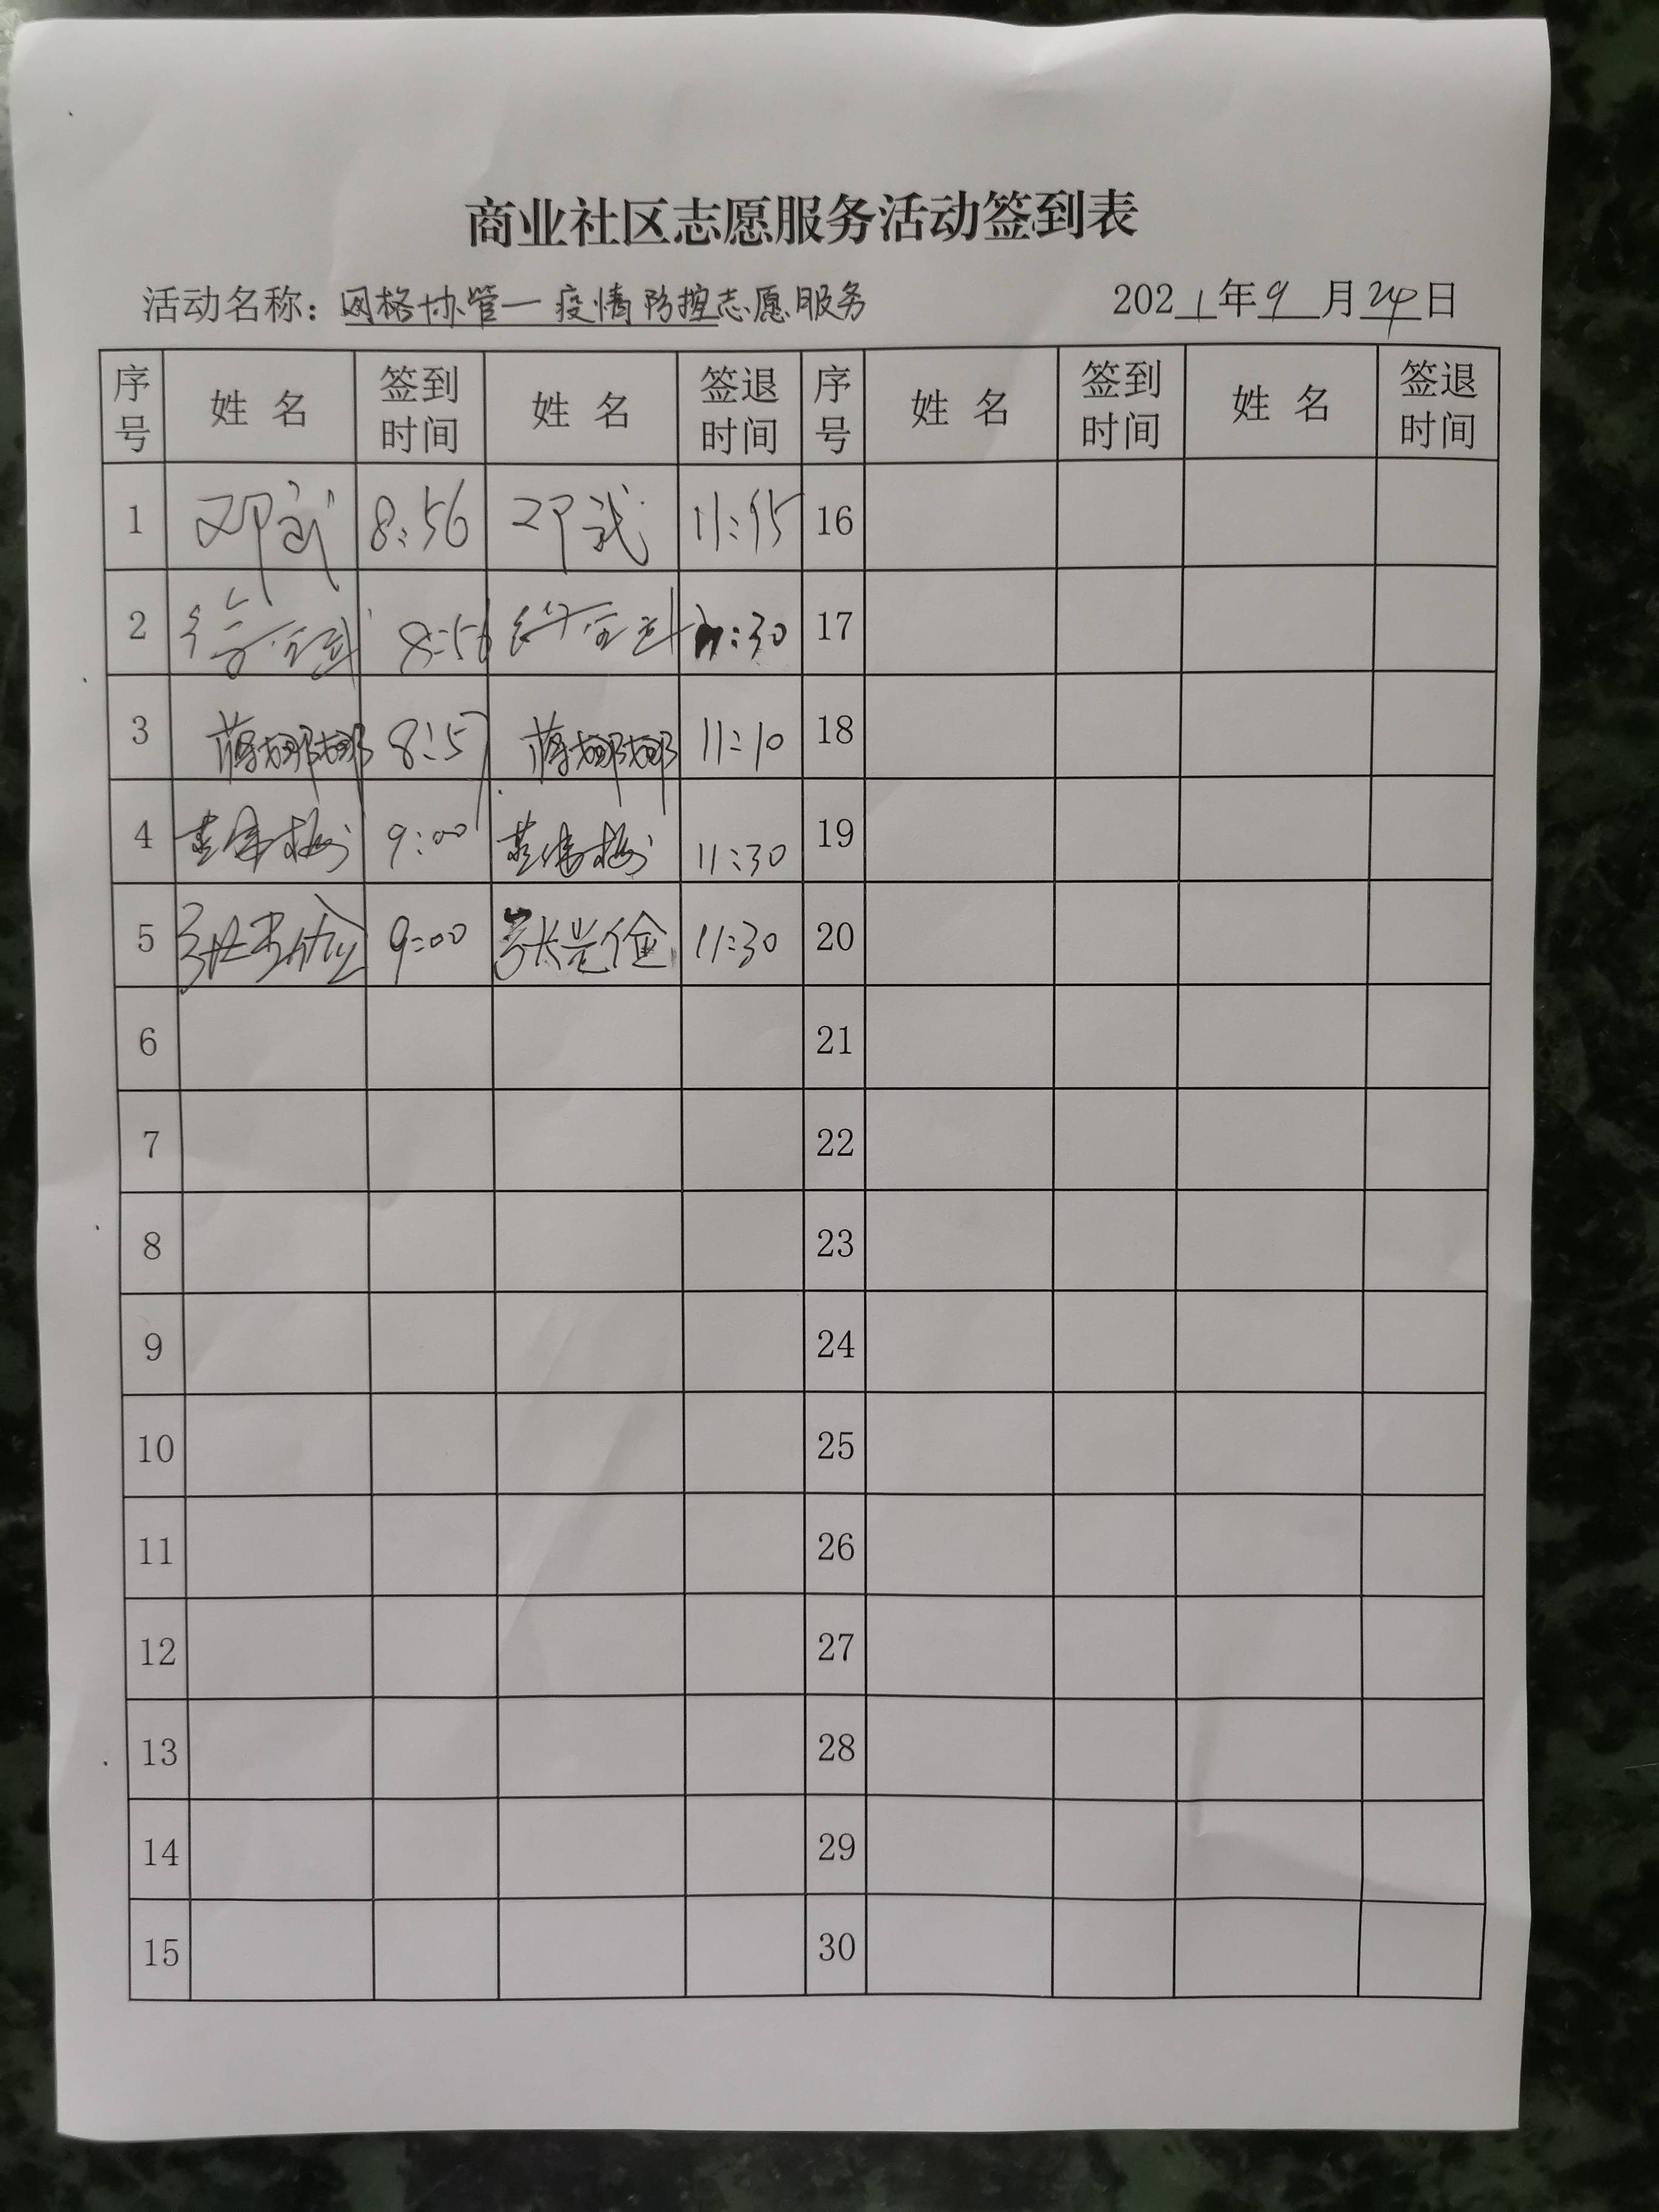 商业社区志愿服务活动签到表
活动名称：网格协管一疫情防控志愿服务 2021年9月24日
序号 姓名 签到时间 姓名 签退时间 序号 姓名 签到时间 姓名 签退时间
1 邓武 8:56 邓武 11:15 16
2 8:56 :30 17
3 蒋娜娜 8:57 蒋娜娜 11:10 18
4 9:00 11:30 19
5 9:00 张 11:30 20
6 21
7 22
8 23
9 24
10 25
11 26
12 27
13 28
14 29
15 30